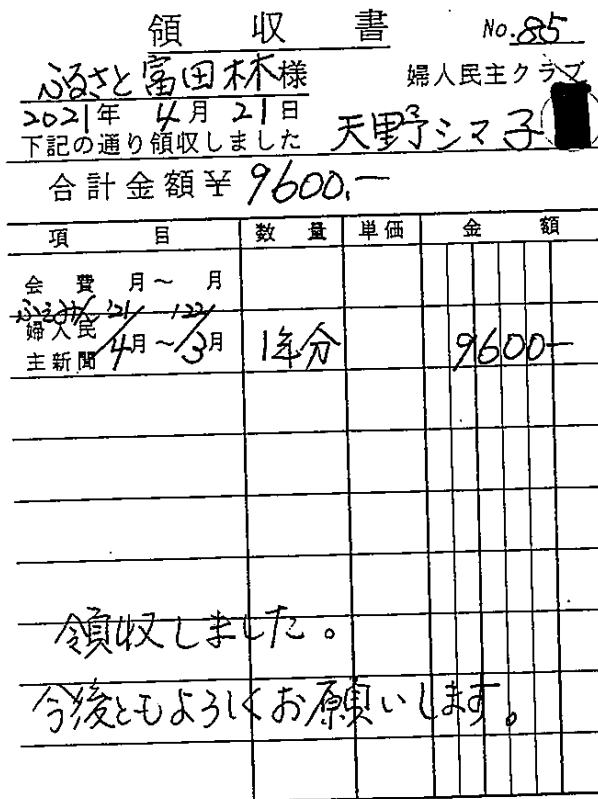 領収書
No. 85
ふるさと富田林様
婦人民主クラブ
2021年 4月 21日
下記の通り領収しました
天野シマ子
合計金額¥ 9600.-
項目 数量 単価 金額
会費 月~ 月
ふぇみん '21 '22
婦人民主新聞 4月~3月 1年分 9600-
領収しました。
今後ともよろしくお願いします。